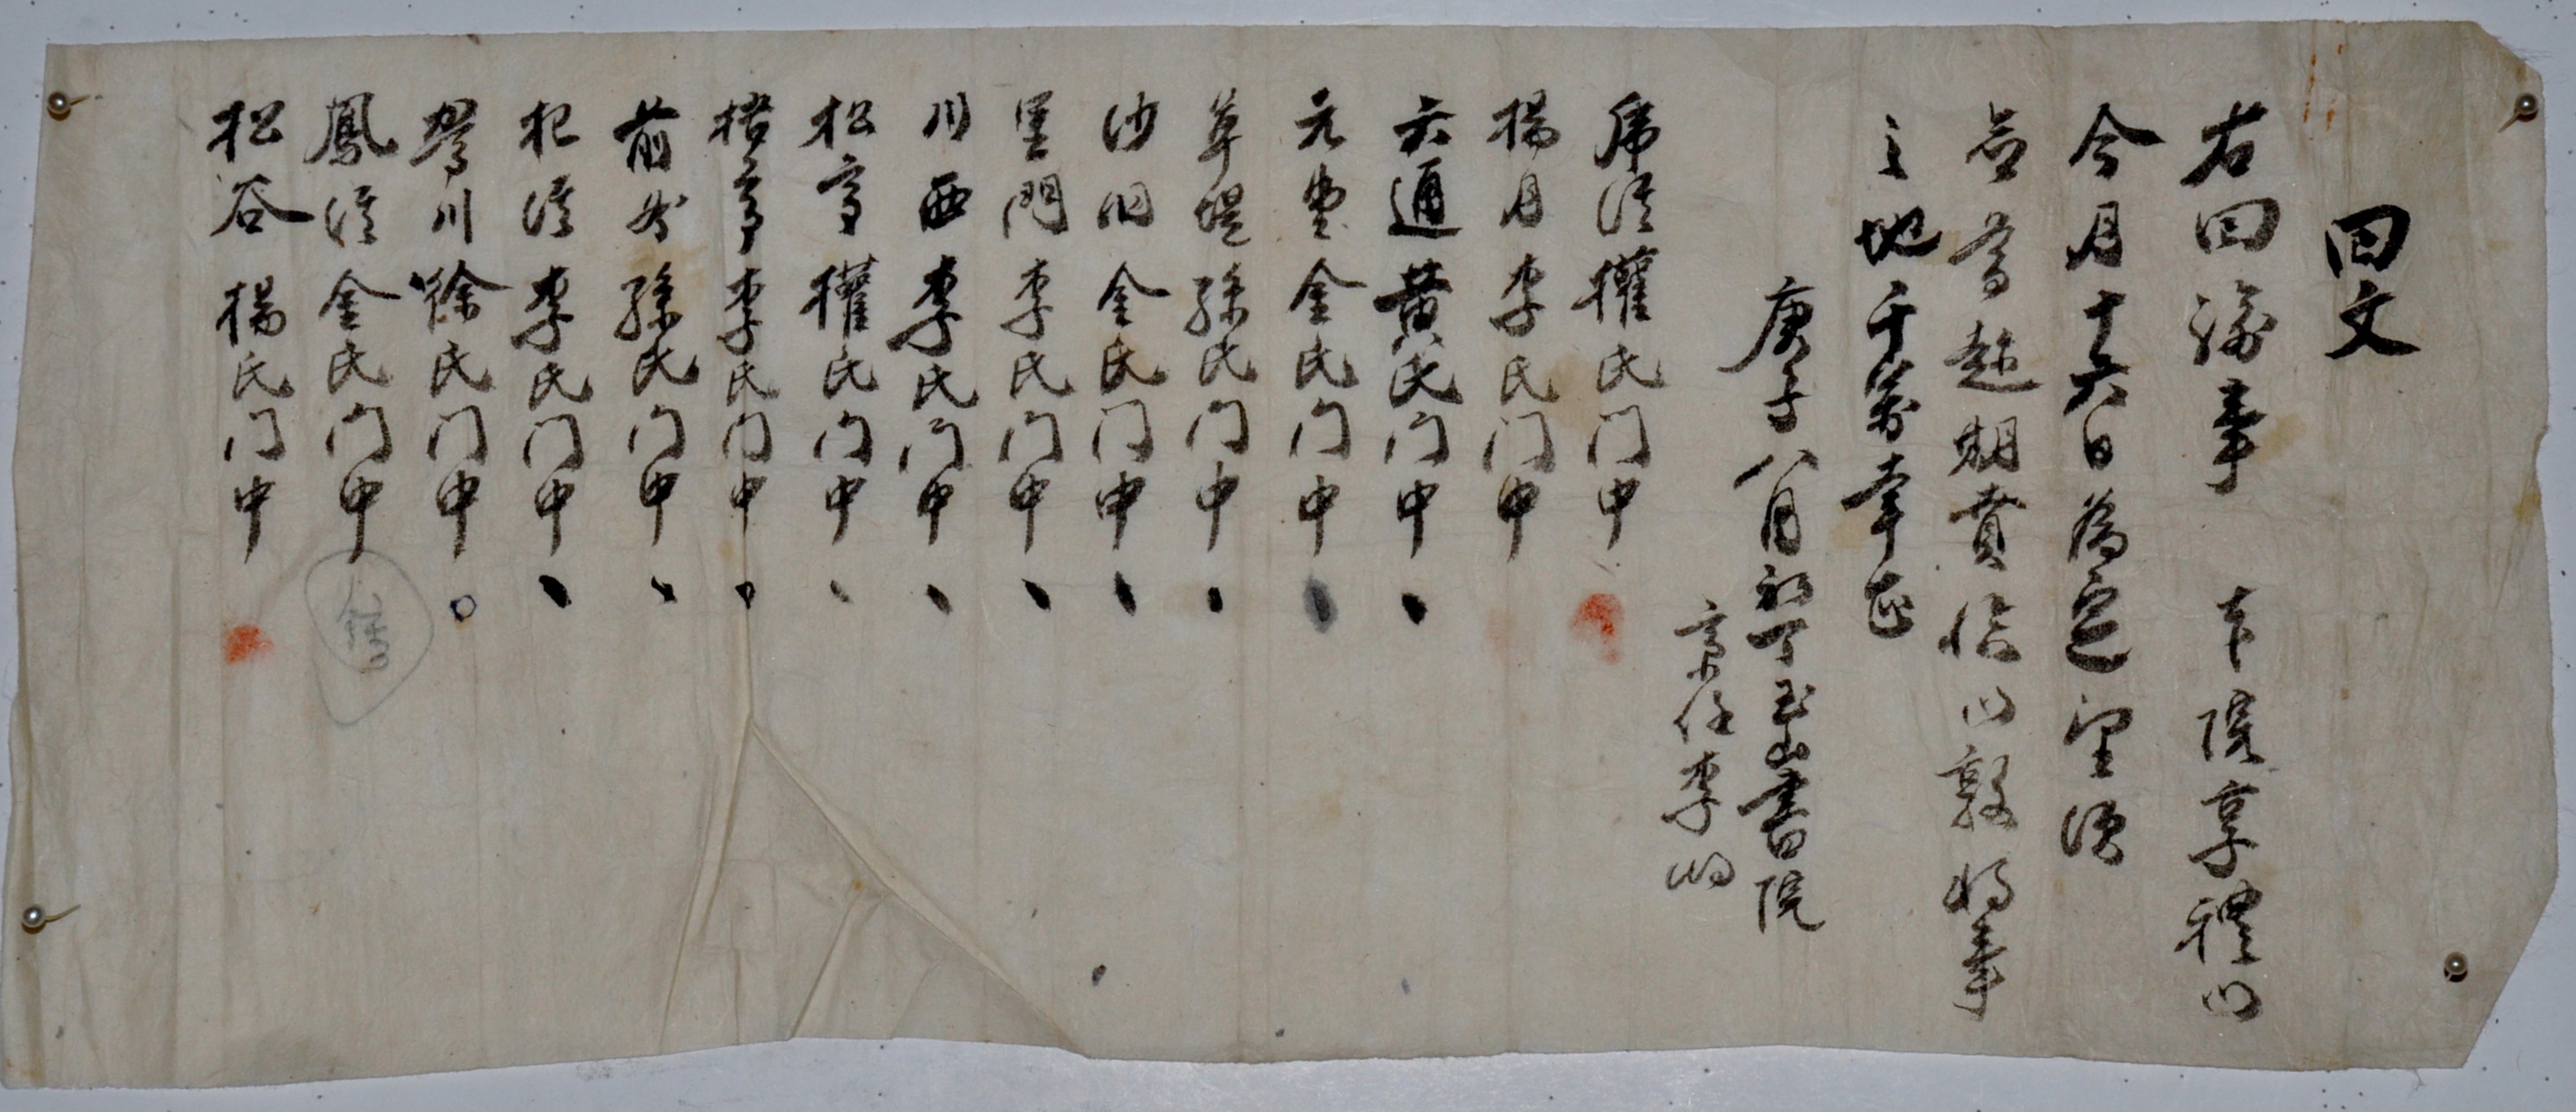 回文
右回諭事 本院享禮以
今月十六日爲定望須
益齊趁期賁臨以敦將事
之地千萬幸甚
庚子八月初一日玉山書院
齋任李
虎溪權氏门中
楊月李氏门中
六通黃氏门中
元堂金氏门中
草堤孫氏门中
沙洞金氏门中
里門李氏门中
川西李氏门中
松亭權氏门中
楮亭李氏门中
前 孫氏门中
杞溪李氏门中
琴川徐氏门中
鳳溪金氏门中
松谷楊氏门中